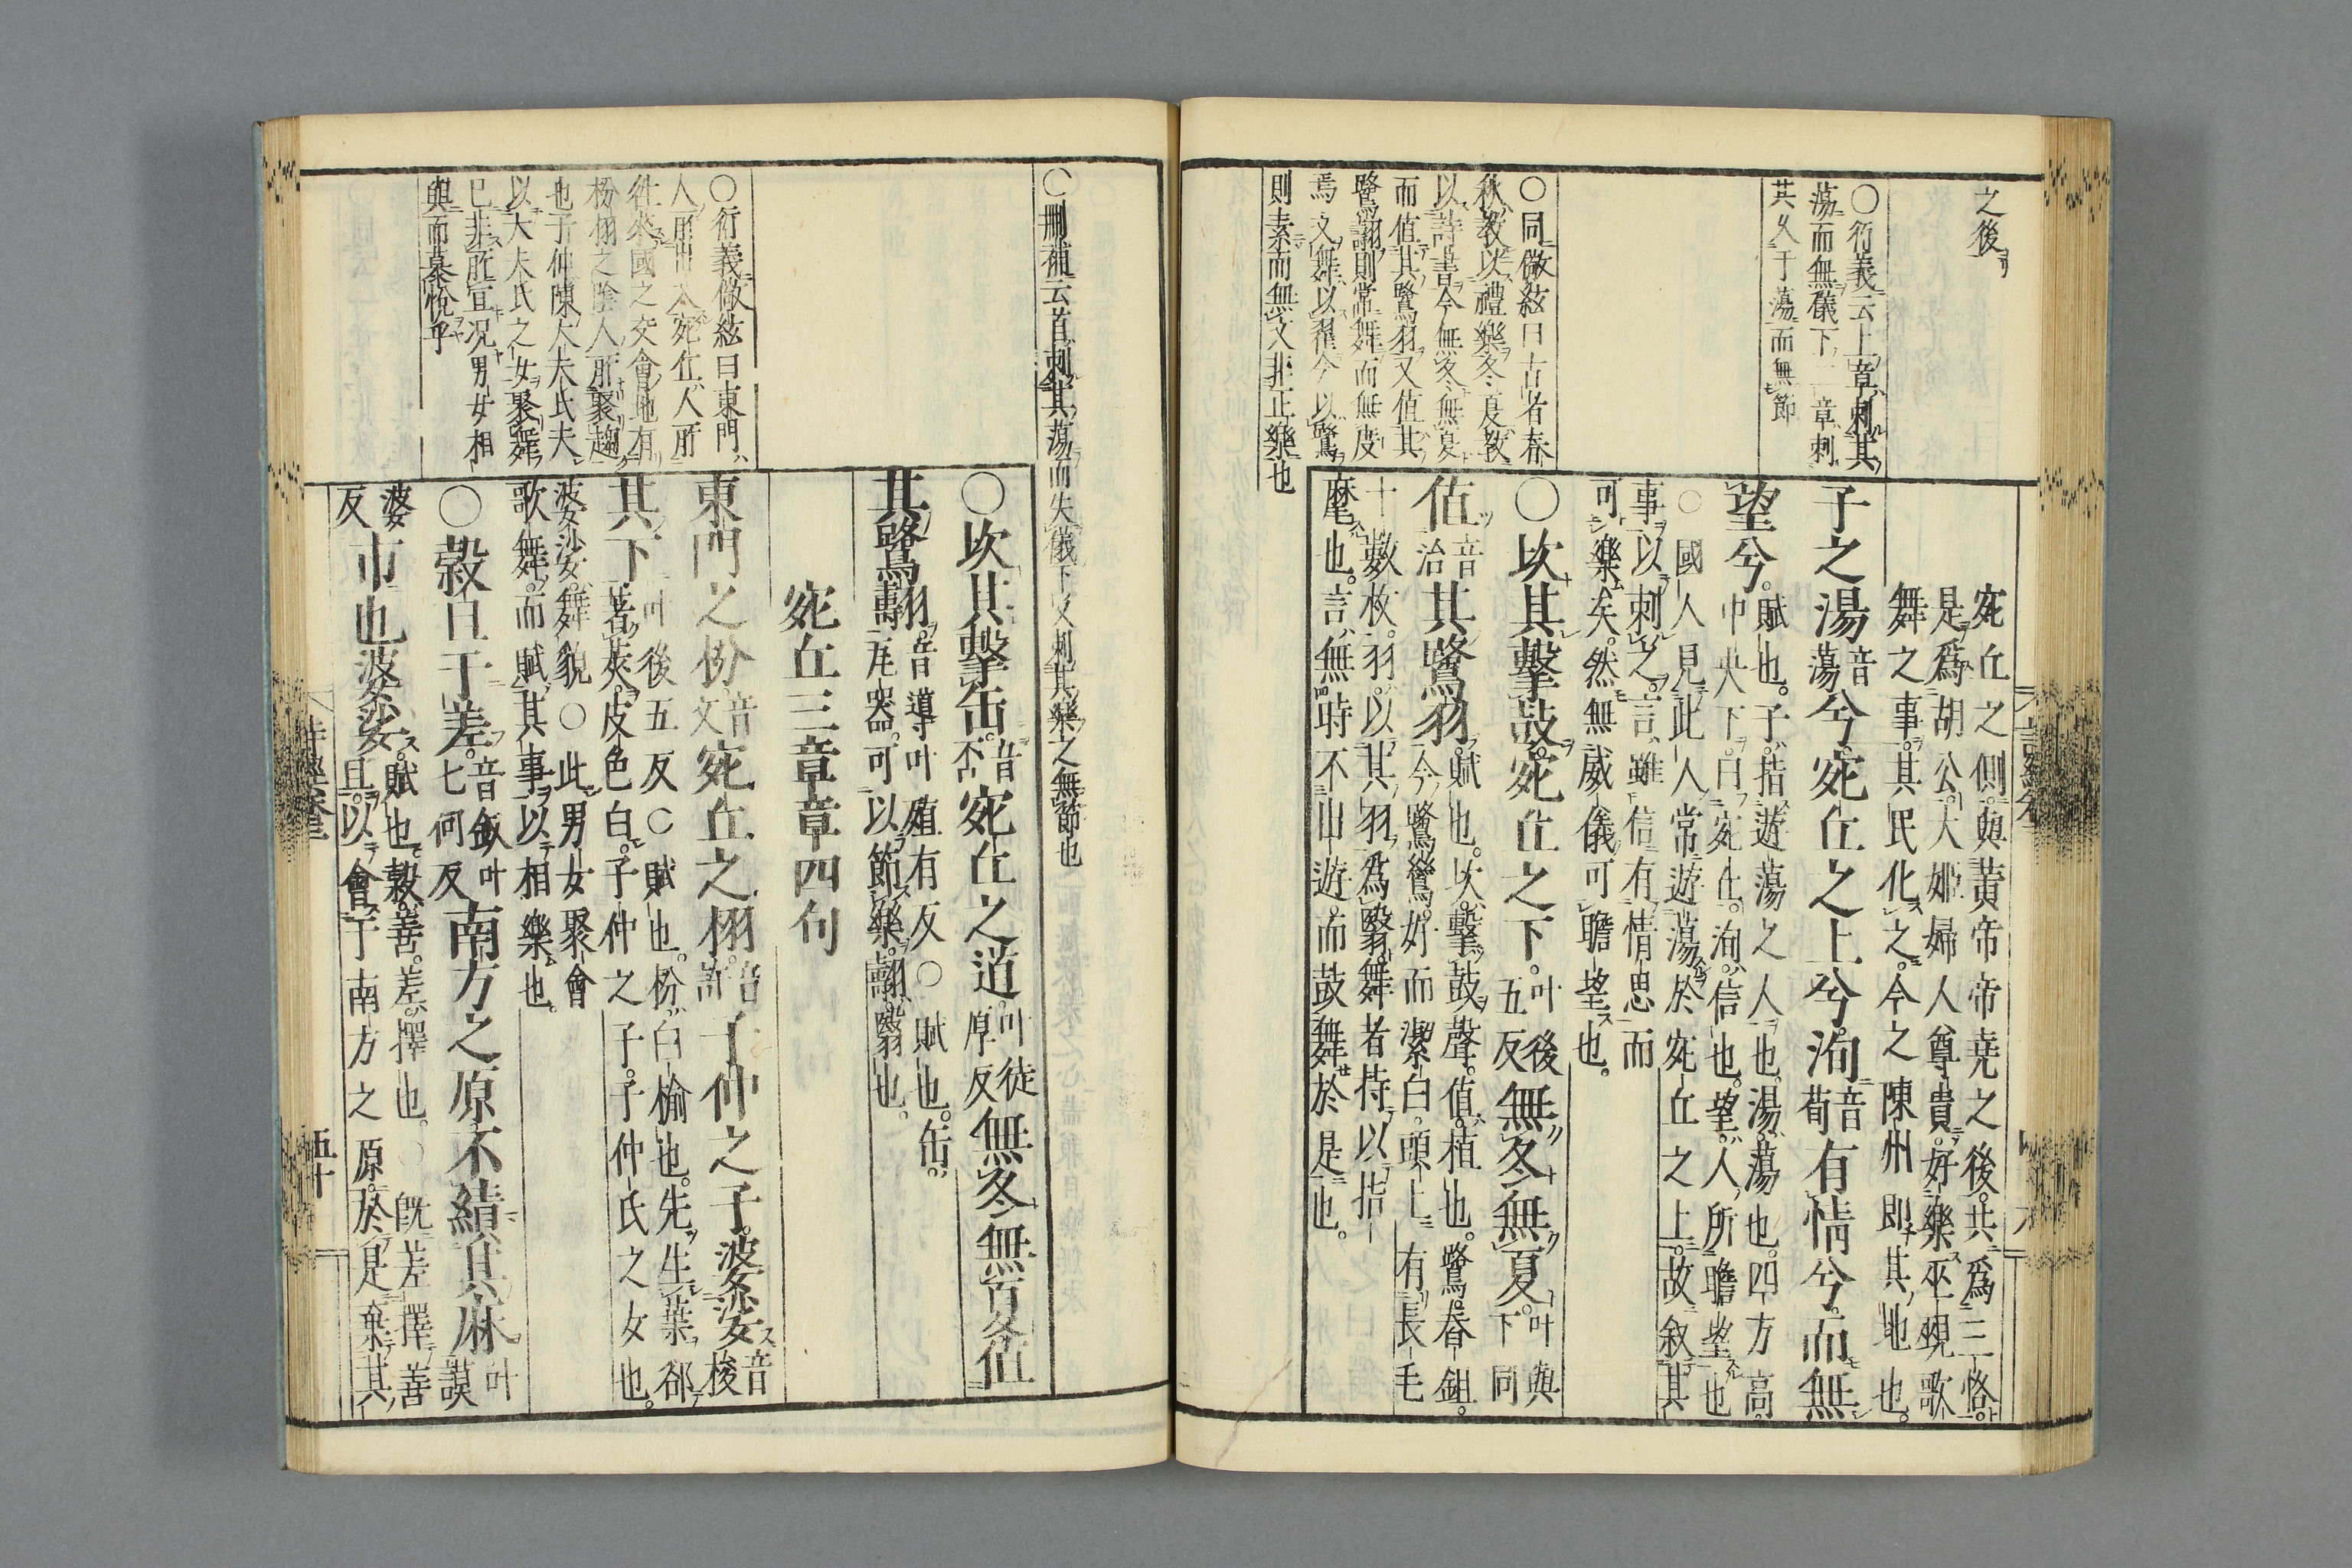 之後
○衍義云上章刺其
蕩而無儀下二章刺
其久于蕩而無節
○同徽絃曰古者春
秋教以禮樂冬夏教
以詩書今無冬無夏
而值其鷺羽又值其
鷺翿則常舞而無度
焉文舞以翟今以鷺
則素而無文非正樂也
宛丘之側與黃帝帝堯之後共為三恪
是為胡公大姬婦人尊貴好樂巫覡歌
舞之事其民化之今之陳州即其地也
子之湯音蕩兮宛丘之上兮洵音荀有情兮而無
望兮賦也子指遊蕩之人也湯蕩也四方高
中央下曰宛丘洵信也望人所瞻望也
○國人見此人常遊蕩於宛丘之上故叙其
事以刺之言雖信有情思而
可樂矣然無威儀可瞻望也
○坎其擊鼓宛丘之下叶後五反無冬無夏叶與下同
值音治其鷺羽賦也坎擊鼓聲值植也鷺舂鉏
今鷺鷥好而潔白頭上有長毛
十數枚羽以其羽為翳舞者持以指
麾也言無時不出遊而鼓舞於是也
○刪補云首刺其蕩而失儀下又刺其樂之無節也
○衍義徽絃曰東門
人所出入宛丘人所
往來國之交會地有
枌栩之陰人所聚趨
也子仲陳大夫氏夫
以大夫氏之女聚舞
已非所宜况男女相
與而慕悅乎
○坎其擊缶音否宛丘之道叶徒厚反無冬無夏值
其鷺翿音導叶殖有反○賦也缶
瓦器可以節樂翿翳也
宛丘三章章四句
東門之枌音文宛丘之栩音許子仲之子婆娑音梭
其下叶後五反○賦也枌白榆也先生葉郤
著莢皮色白子仲之子子仲氏之女也
婆娑舞貌○此男女聚會
歌舞而賦其事以相樂也
○穀旦于差音釵叶七何反南方之原不績其麻叶謨
婆反市也婆娑賦也穀善差擇也○既差擇善
旦以會于南方之原於是棄其
詩經卷
五十